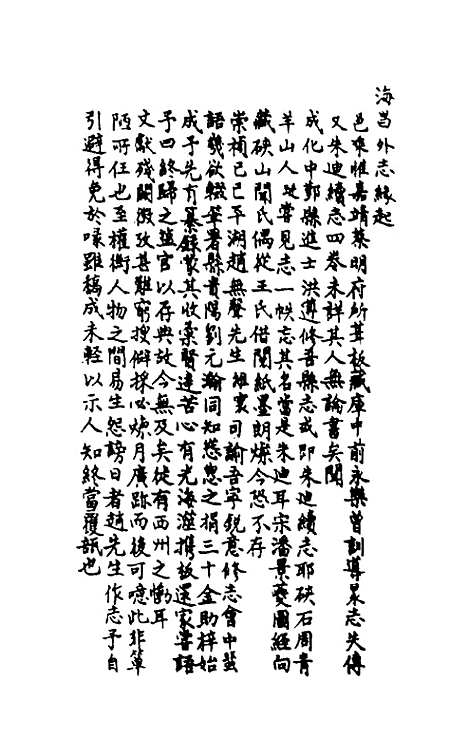 海昌外志緣起
邑乘惟嘉靖蔡明府所葺板藏庫中前永樂曾訓導昶志失傳
又朱迪續志四卷未詳其人無論書矣聞
成化中鄞縣進士洪遵修吾縣志或即朱迪續志耶硤石周青
羊山人嘗見志一帙忘其名當是朱迪耳宋潘景夔圖經向
藏硤山聞氏偶從王氏借閱紙墨朗燦今恐不存
崇禎己巳平湖趙無聲先生維寰司諭吾寧銳意修志會中蜚
語幾欲輟筆署縣貴陽劉元瀚同知慫恿之捐三十金助梓始
成予先有纂錄蒙其收藁賢達苦心有光海澨攜板還家嘗語
予曰終歸之鹽官以存典故今無及矣徒有西州之慟耳
文獻殘闕徵攷甚難窮搜僻採必煩月廣跡而後可噫此非單
陋所任也至權衡人物之間易生怨謗日者趙先生作志予自
引避得免於喙雖稿成未輕以示人知終當覆瓿也